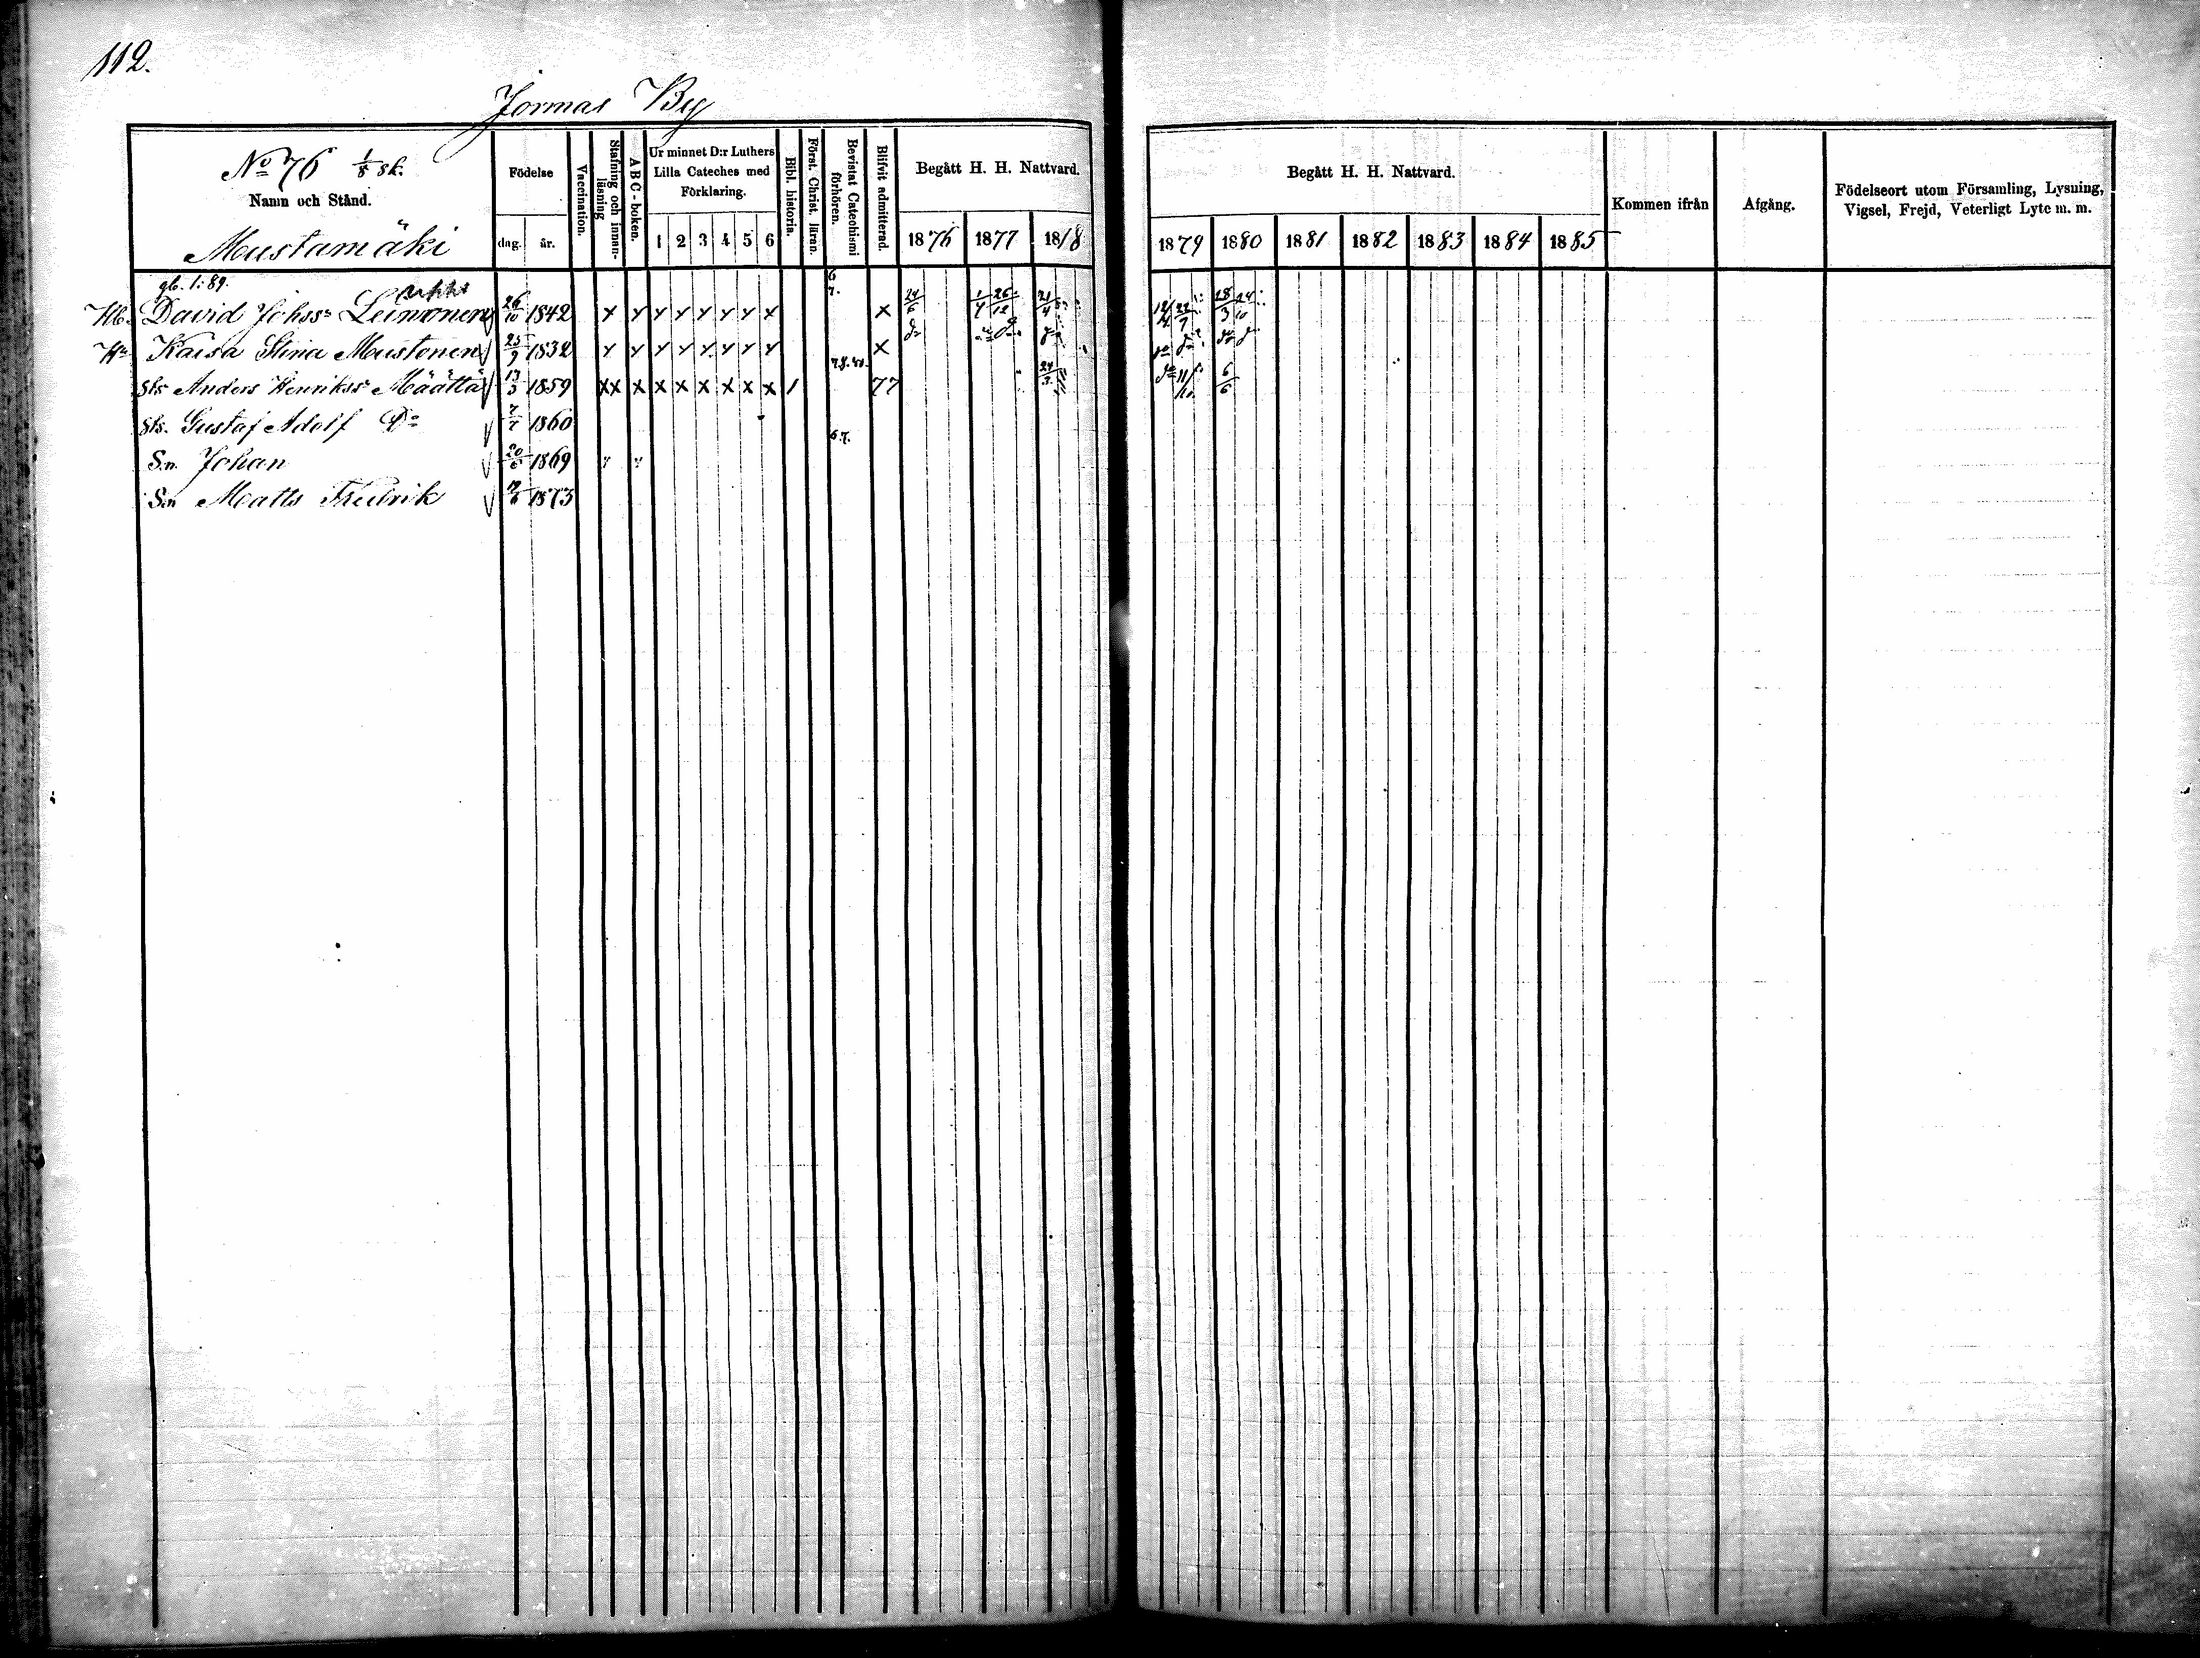 112.
Jormas By
No 76 1/8 sk.
Namn och Stånd.
Mustamäki
Födelse
dag. år.
Vaccination.
Stafning och innan-läsning
ABC-boken.
Ur minnet D:r Luthers Lilla Cateches med Förklaring.
1 2 3 4 5 6
Bibl. historia.
Först. Christ. läran.
Bevistat Catechismi förhören.
Blifvit admitterad.
Begått H. H. Nattvard.
1876 1877 1878
Begått H. H. Nattvard.
1879 1880 1881 1882 1883 1884 1885
Kommen ifrån
Afgång.
Födelseort utom Församling, Lysning, Vigsel, Frejd, Veterligt Lyte m. m.
gb. 1:89.
Hb. David Johss Leinonen 26/10 1842 x x x x x x x x 6 7. x 24/6 1/7 26/12 21/4 22/7 28/3 24/10
Hu Kaisa Stina Mustonen 25/9 1832 x x x x x x x x x
Sts Anders Henrikss Määttä 1859 xx x x x x x x x 1 7.8. 77 24/3 6/6
Sts. Gustaf Adolf Do 1860
Sn. Johan 1869 6.7.
Sn Matts Fredrik 1873